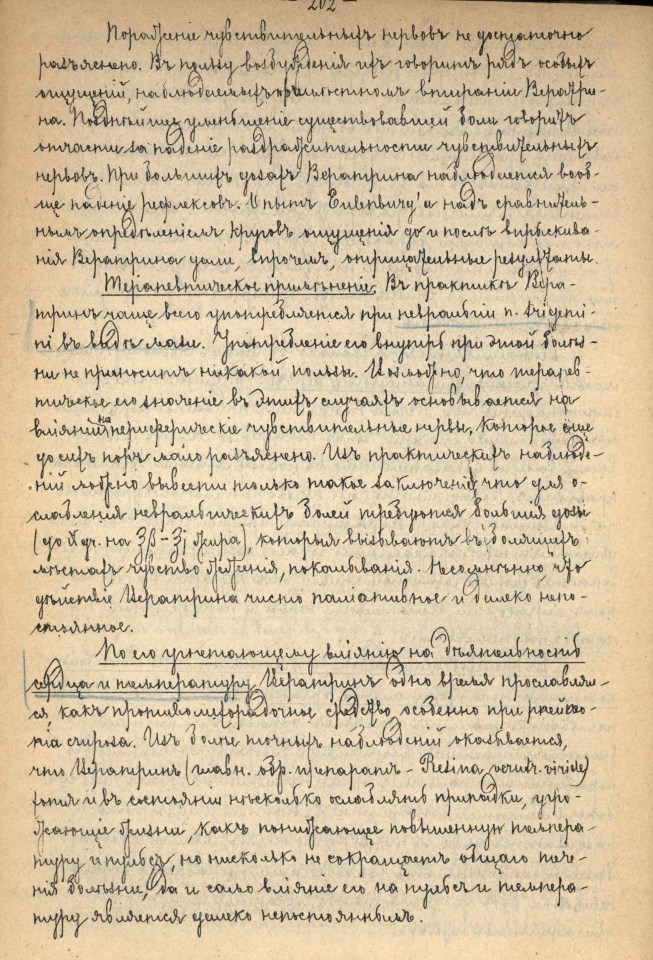 — 202 —
Пораженіе чувствительныхъ нервовъ не достаточно
разъяснено. Въ пользу возбужденія ихъ говоритъ рядъ особыхъ
ощущеній, наблюдаемыхъ при мѣстномъ втираніи Вератри-
на. Позднѣйшее уменьшеніе существовавшей боли говоритъ
отчасти за паденіе раздражительности чувствительныхъ
нервовъ. При большихъ дозахъ Вератрина наблюдается вооб-
ще паденіе рефлексовъ. Опыты Eulenburg'а надъ сравнитель-
нымъ опредѣленіемъ круговъ ощущенія до и послѣ впрыскива-
нія Вератрина дали, впрочемъ, отрицательные результаты.
Терапевтическое примѣненіе. Въ практикѣ Вера-
тринъ чаще всего употребляется при невралгіи n. trigemi-
ni въ видѣ мази. Употребленіе его внутрь при этой болѣз-
ни не приноситъ никакой пользы. Возможно, что терапев-
тическое его значеніе въ этихъ случаяхъ основывается на
вліяніи на периферическіе чувствительные нервы, которое еще
до сихъ поръ мало разъяснено. Изъ практическихъ наблюде-
ній можно вывести только такое заключеніе, что для о-
слабленія невралгическихъ болей требуются большія дозы
(до гр. на ʒβ – ʒj жира), которыя вызываютъ въ болящихъ
мѣстахъ чувство жженія, покалыванія. Несомнѣнно что
дѣйствіе Вератрина чисто паліативное и далеко непо-
стоянное.
По его угнетающему вліянію на дѣятельность
сердца и температуру Вератринъ одно время прославлял-
ся какъ противолихорадочное средство, особенно при
Изъ болѣе точныхъ наблюденій оказывается,
что Вератринъ (главн. обр. препаратъ – Resina veratr. viride)
хотя и въ состояніи нѣсколько ослаблять припадки, угро-
жающіе жизни, какъ понижающее повышенную темпера-
туру и пульсъ, но нисколько не сокращаетъ общаго тече-
нія болѣзни, да и само вліяніе его на пульсъ и темпера-
туру является далеко непостояннымъ.